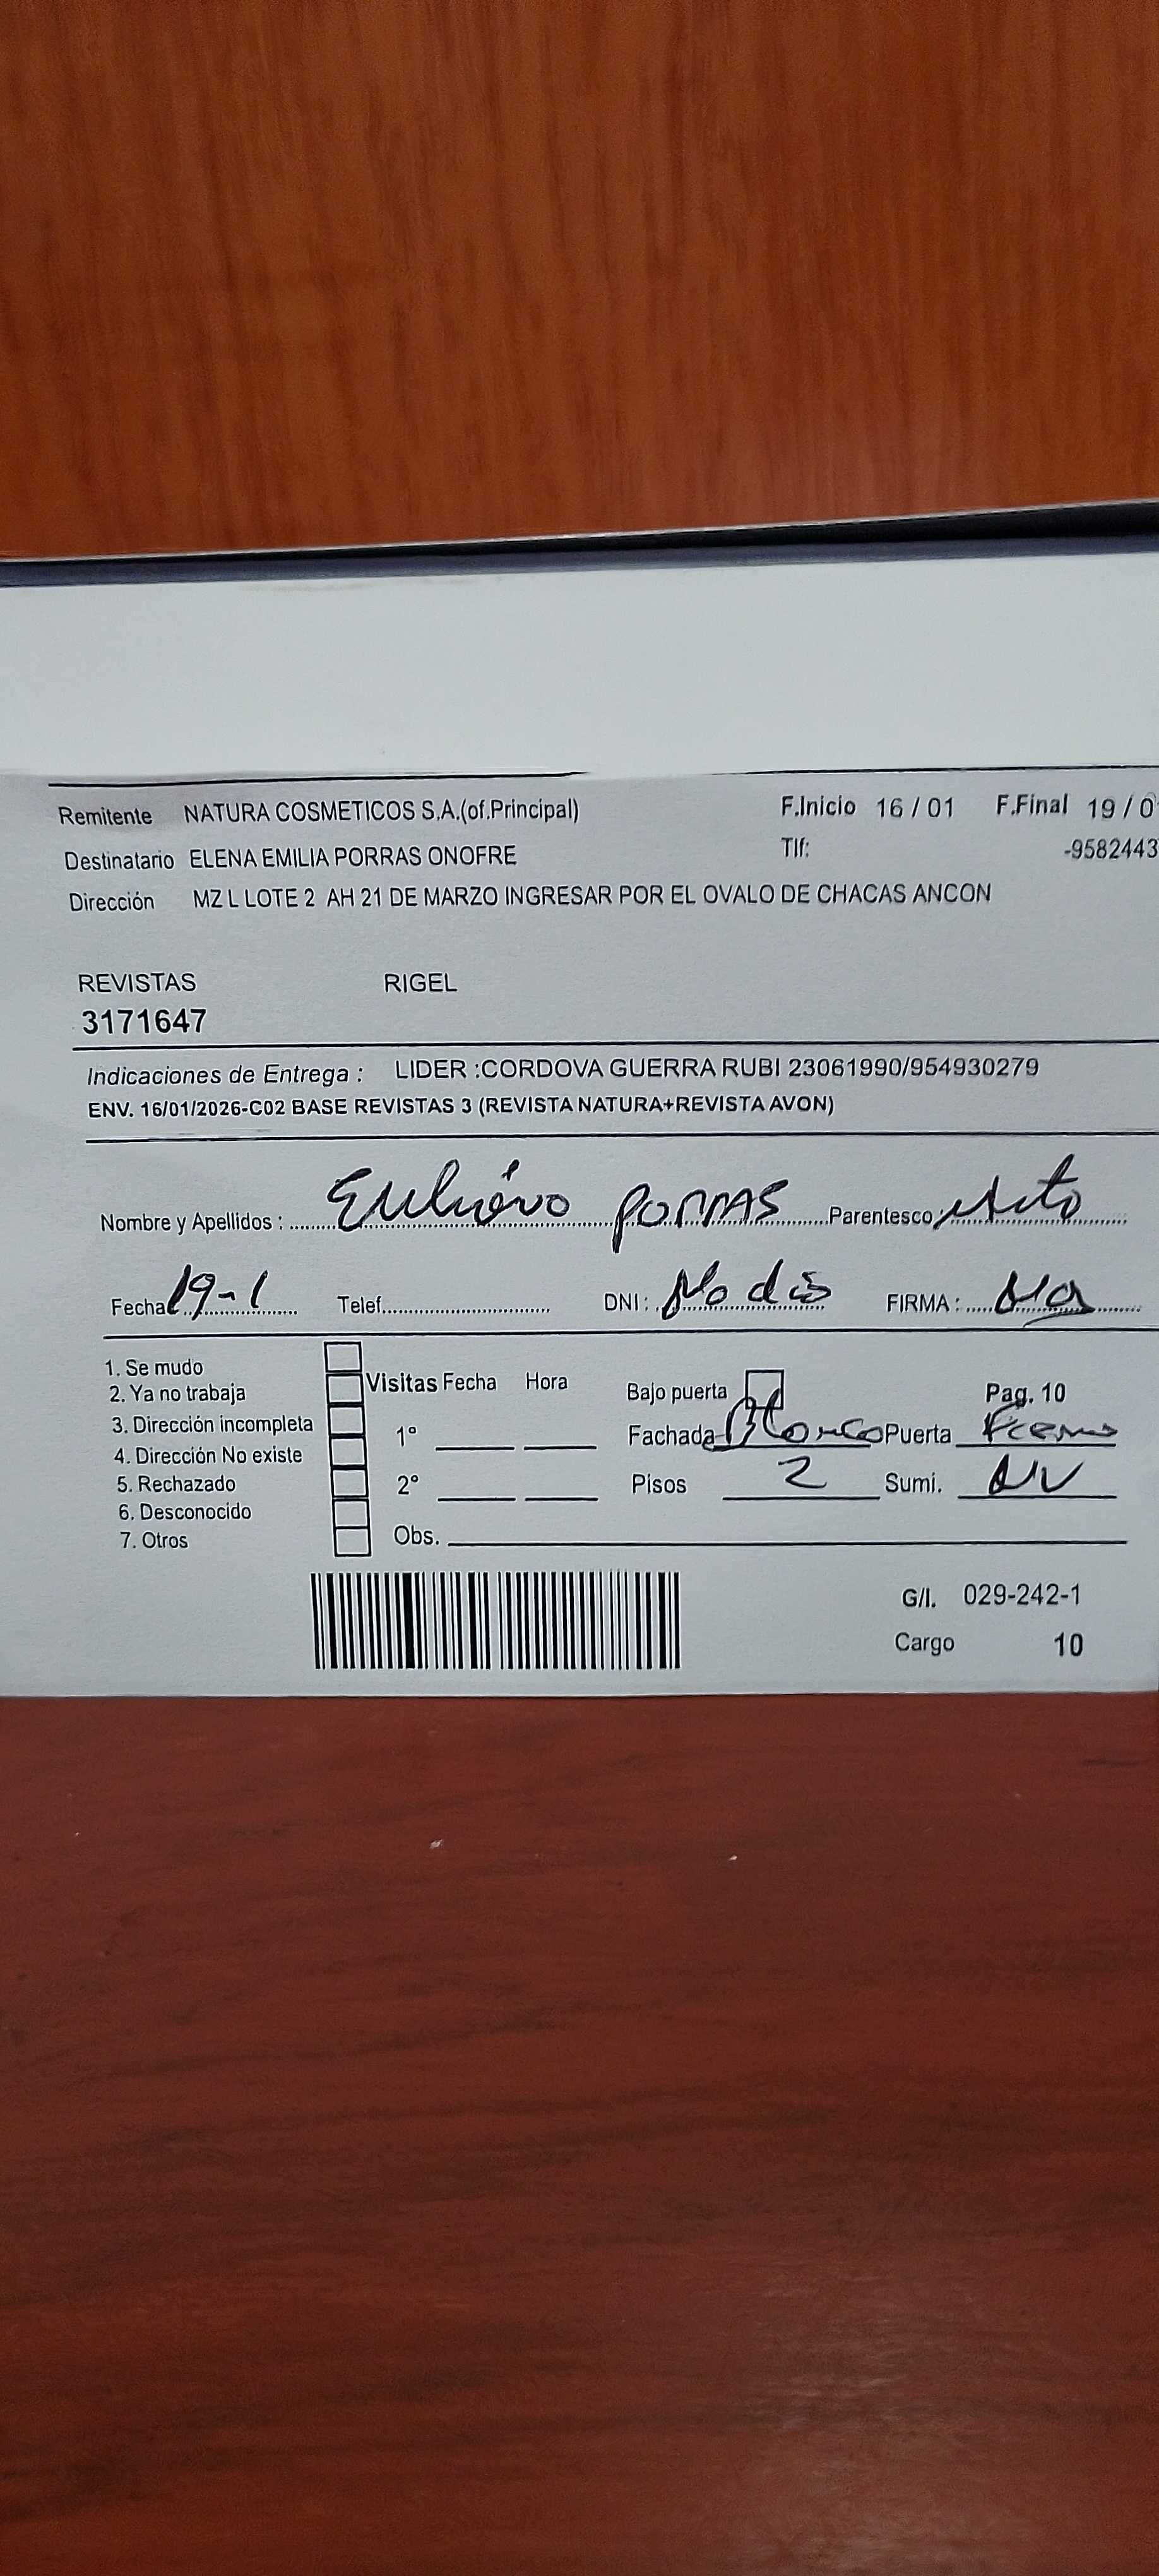 Remitente NATURA COSMETICOS S.A.(of.Principal) F.Inicio 16 / 01 F.Final 19 / 0
Destinatario ELENA EMILIA PORRAS ONOFRE Tlf: -9582443
Dirección MZ L LOTE 2 AH 21 DE MARZO INGRESAR POR EL OVALO DE CHACAS ANCON
REVISTAS RIGEL
3171647
Indicaciones de Entrega : LIDER :CORDOVA GUERRA RUBI 23061990/954930279
ENV. 16/01/2026-C02 BASE REVISTAS 3 (REVISTA NATURA+REVISTA AVON)
Nombre y Apellidos : PORRAS Parentesco:
Fecha 19-1 Telef. DNI: No dio FIRMA :
1. Se mudo
2. Ya no trabaja Visitas Fecha Hora Bajo puerta Pag. 10
3. Dirección incompleta 1° Fachada Blanco Puerta
4. Dirección No existe
5. Rechazado 2° Pisos 2 Sumi. NV
6. Desconocido
7. Otros Obs.
G/I. 029-242-1
Cargo 10